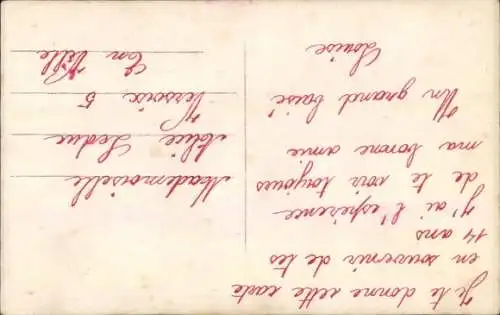 Je te donne cette carte
en souvenir de tes
14 ans
J'ai l'espérence
de te voir toujours
ma bonne amie
Un grand baisé
Louise
Mademoiselle
Alice Leduc
Versoix 5
En Ville